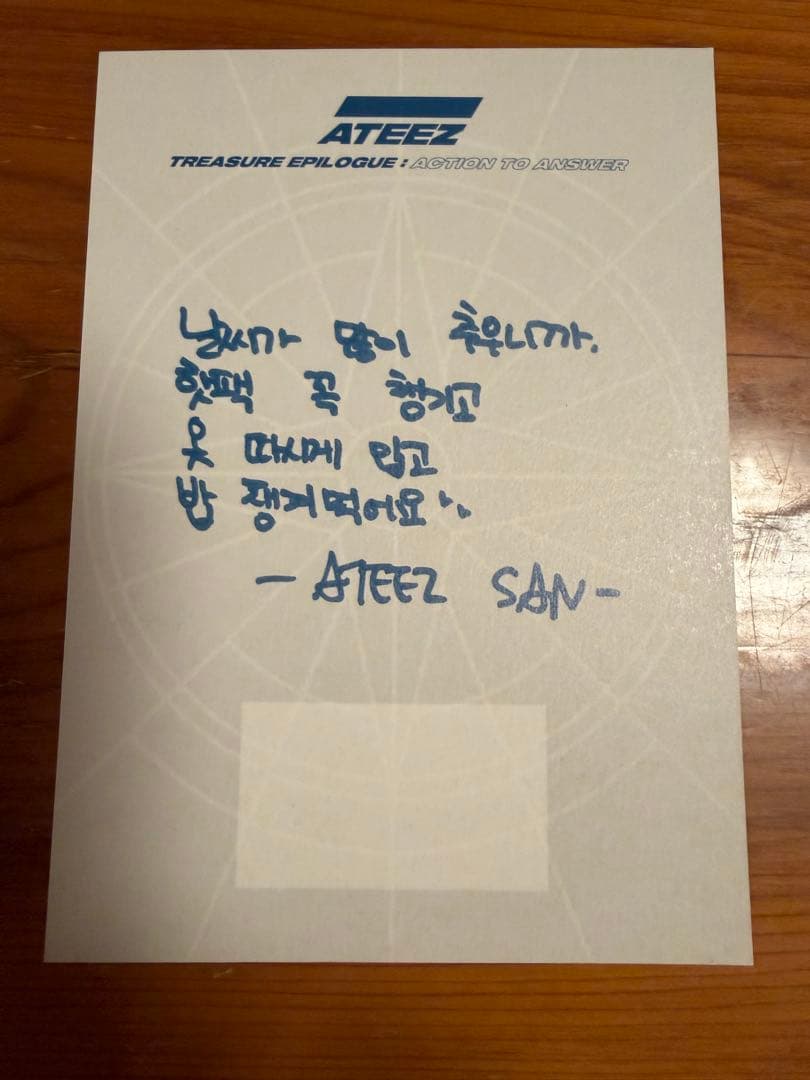 ATEEZ
TREASURE EPILOGUE : ACTION TO ANSWER
날씨가 많이 추우니까.
핫팩 꼭 챙기고
옷 따시게 입고
밥 챙겨먹어요^^
- ATEEZ SAN -